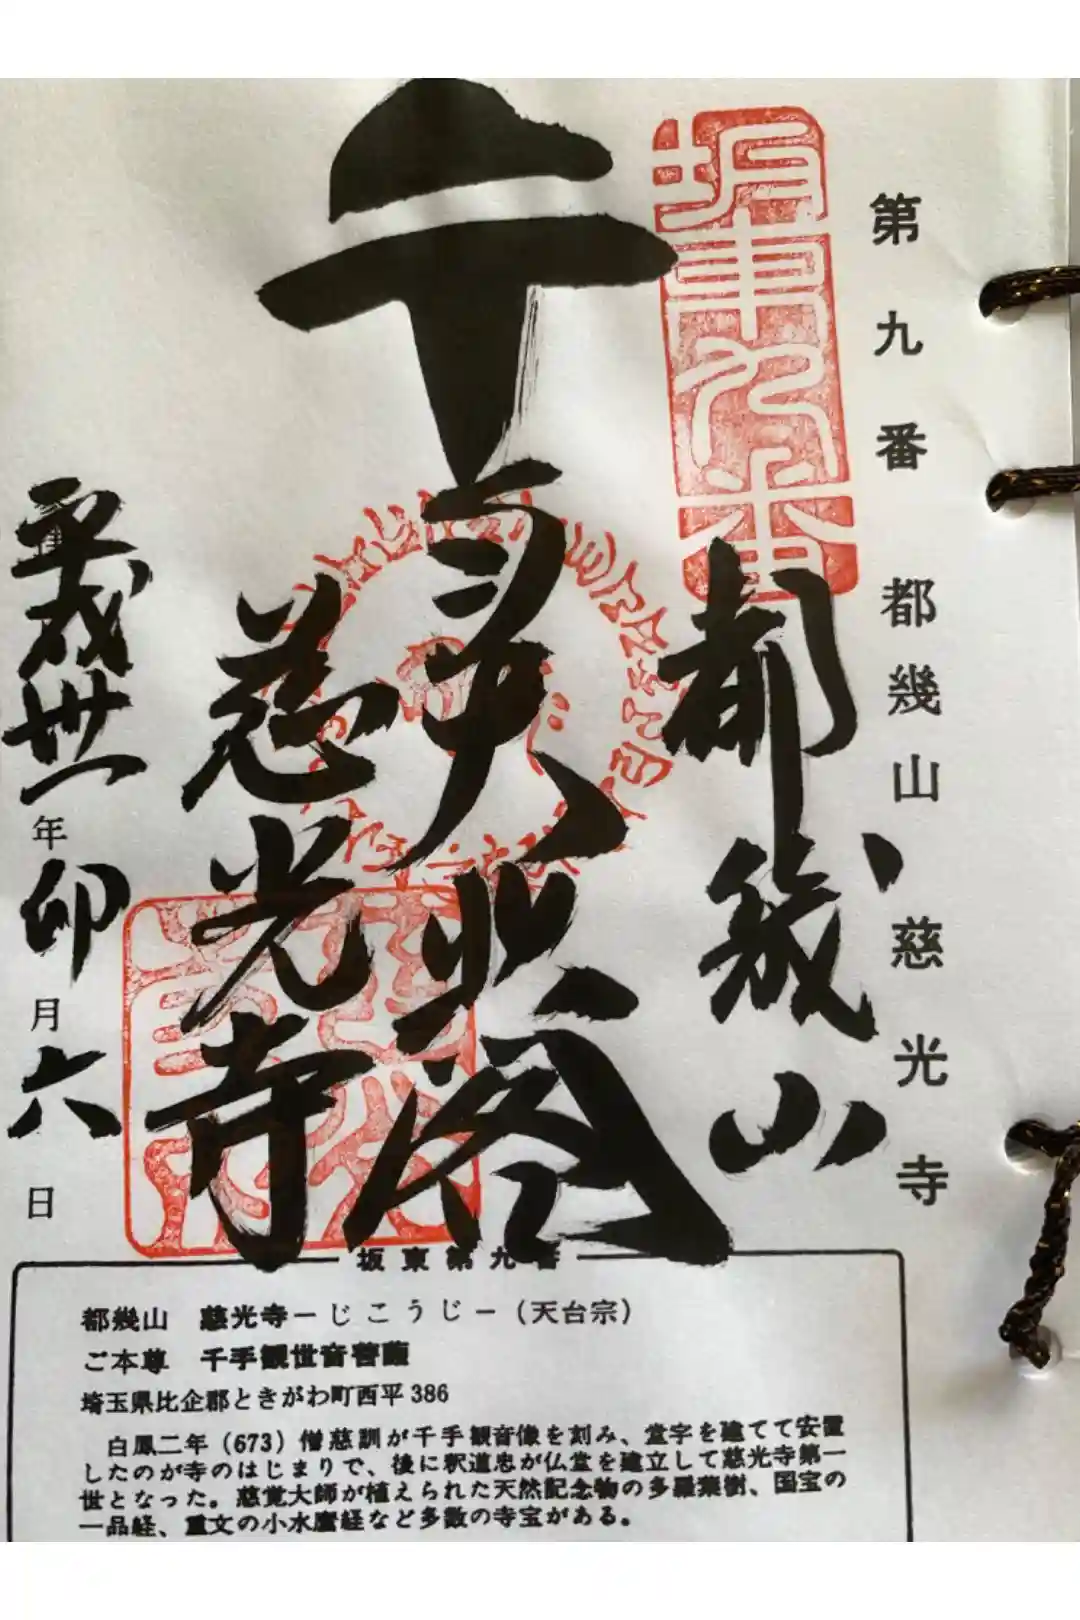 第九番 都幾山 慈光寺
坂東九番
都幾山
千手大悲閣
慈光寺
平成卅一年卯月六日
坂東第九番
都幾山 慈光寺ーじこうじー（天台宗）
ご本尊 千手観世音菩薩
埼玉県比企郡ときがわ町西平386
白鳳二年（673）僧慈訓が千手観音像を刻み、堂宇を建てて安置
したのが寺のはじまりで、後に釈道忠が仏堂を建立して慈光寺第一
世となった。慈覚大師が植えられた天然記念物の多羅葉樹、国宝の
一品経、重文の小水麿経など多数の寺宝がある。